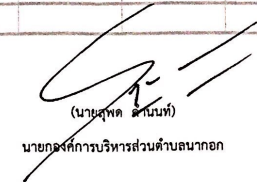 (นายสุพด ด่านนท์)
นายกองค์การบริหารส่วนตำบลนากอก